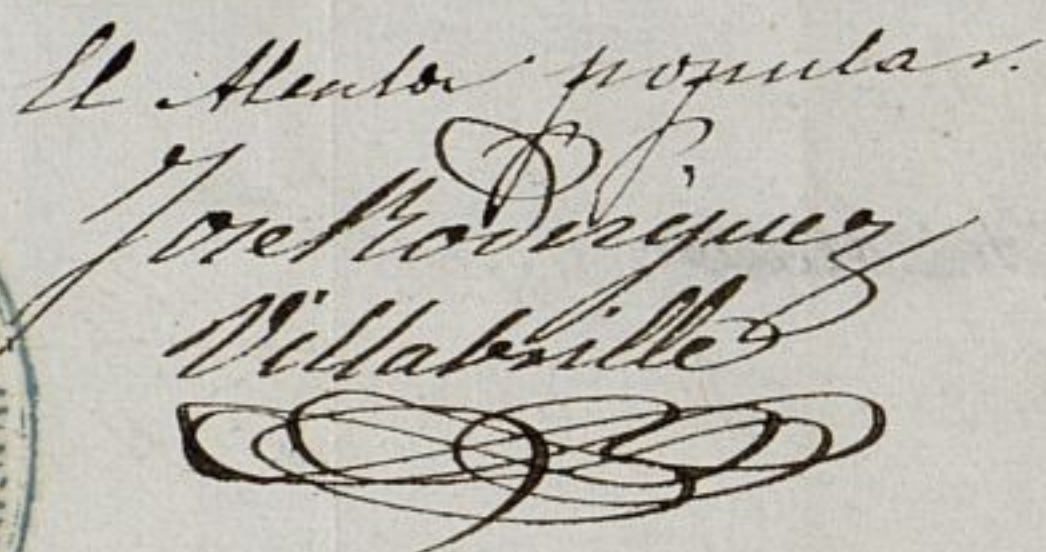 El Alcalde popular.
Jose Rodriguez
Villabrille